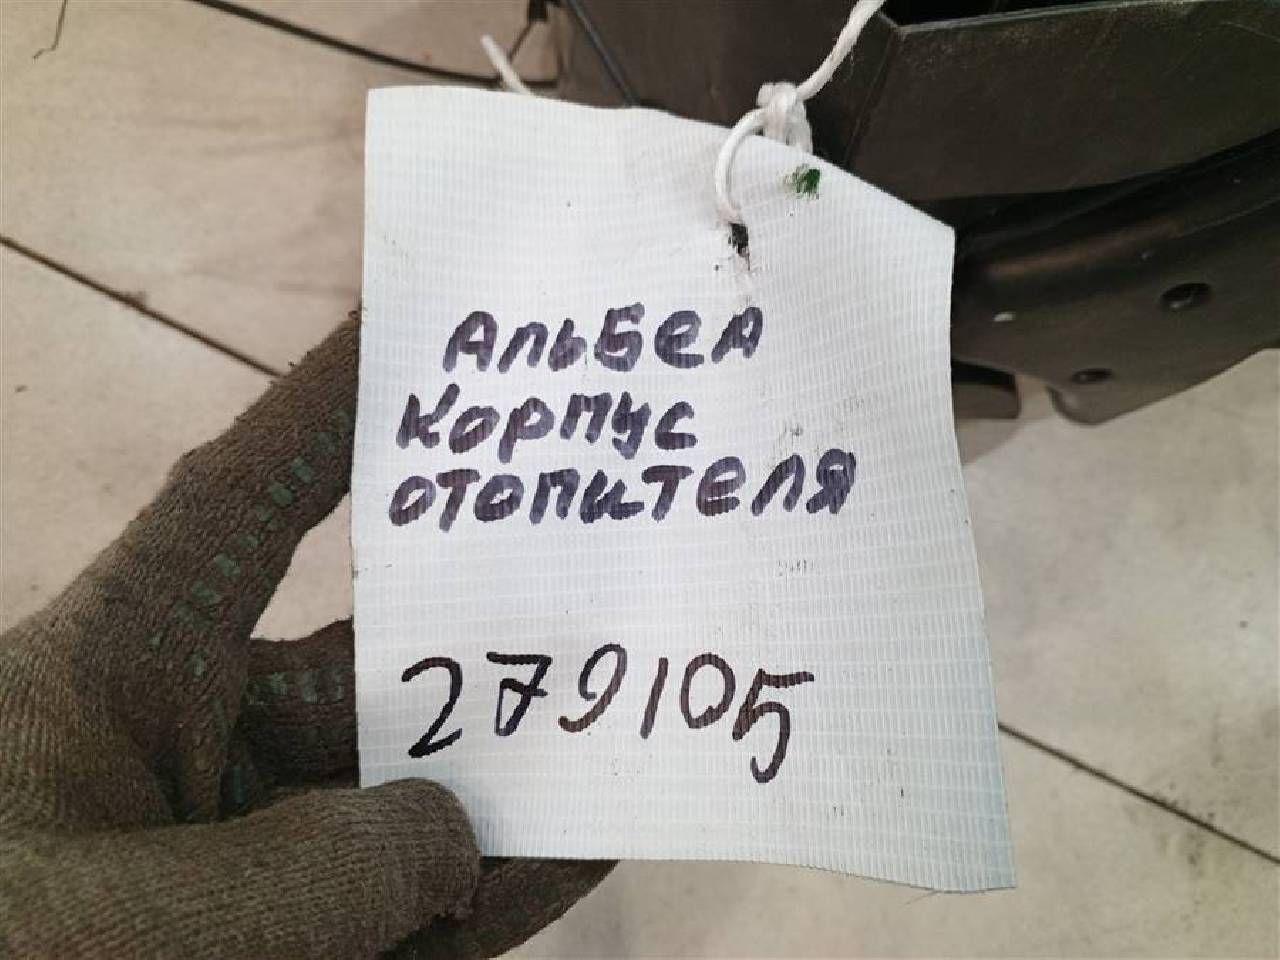 АльБеА
Корпус
отопителя
279105